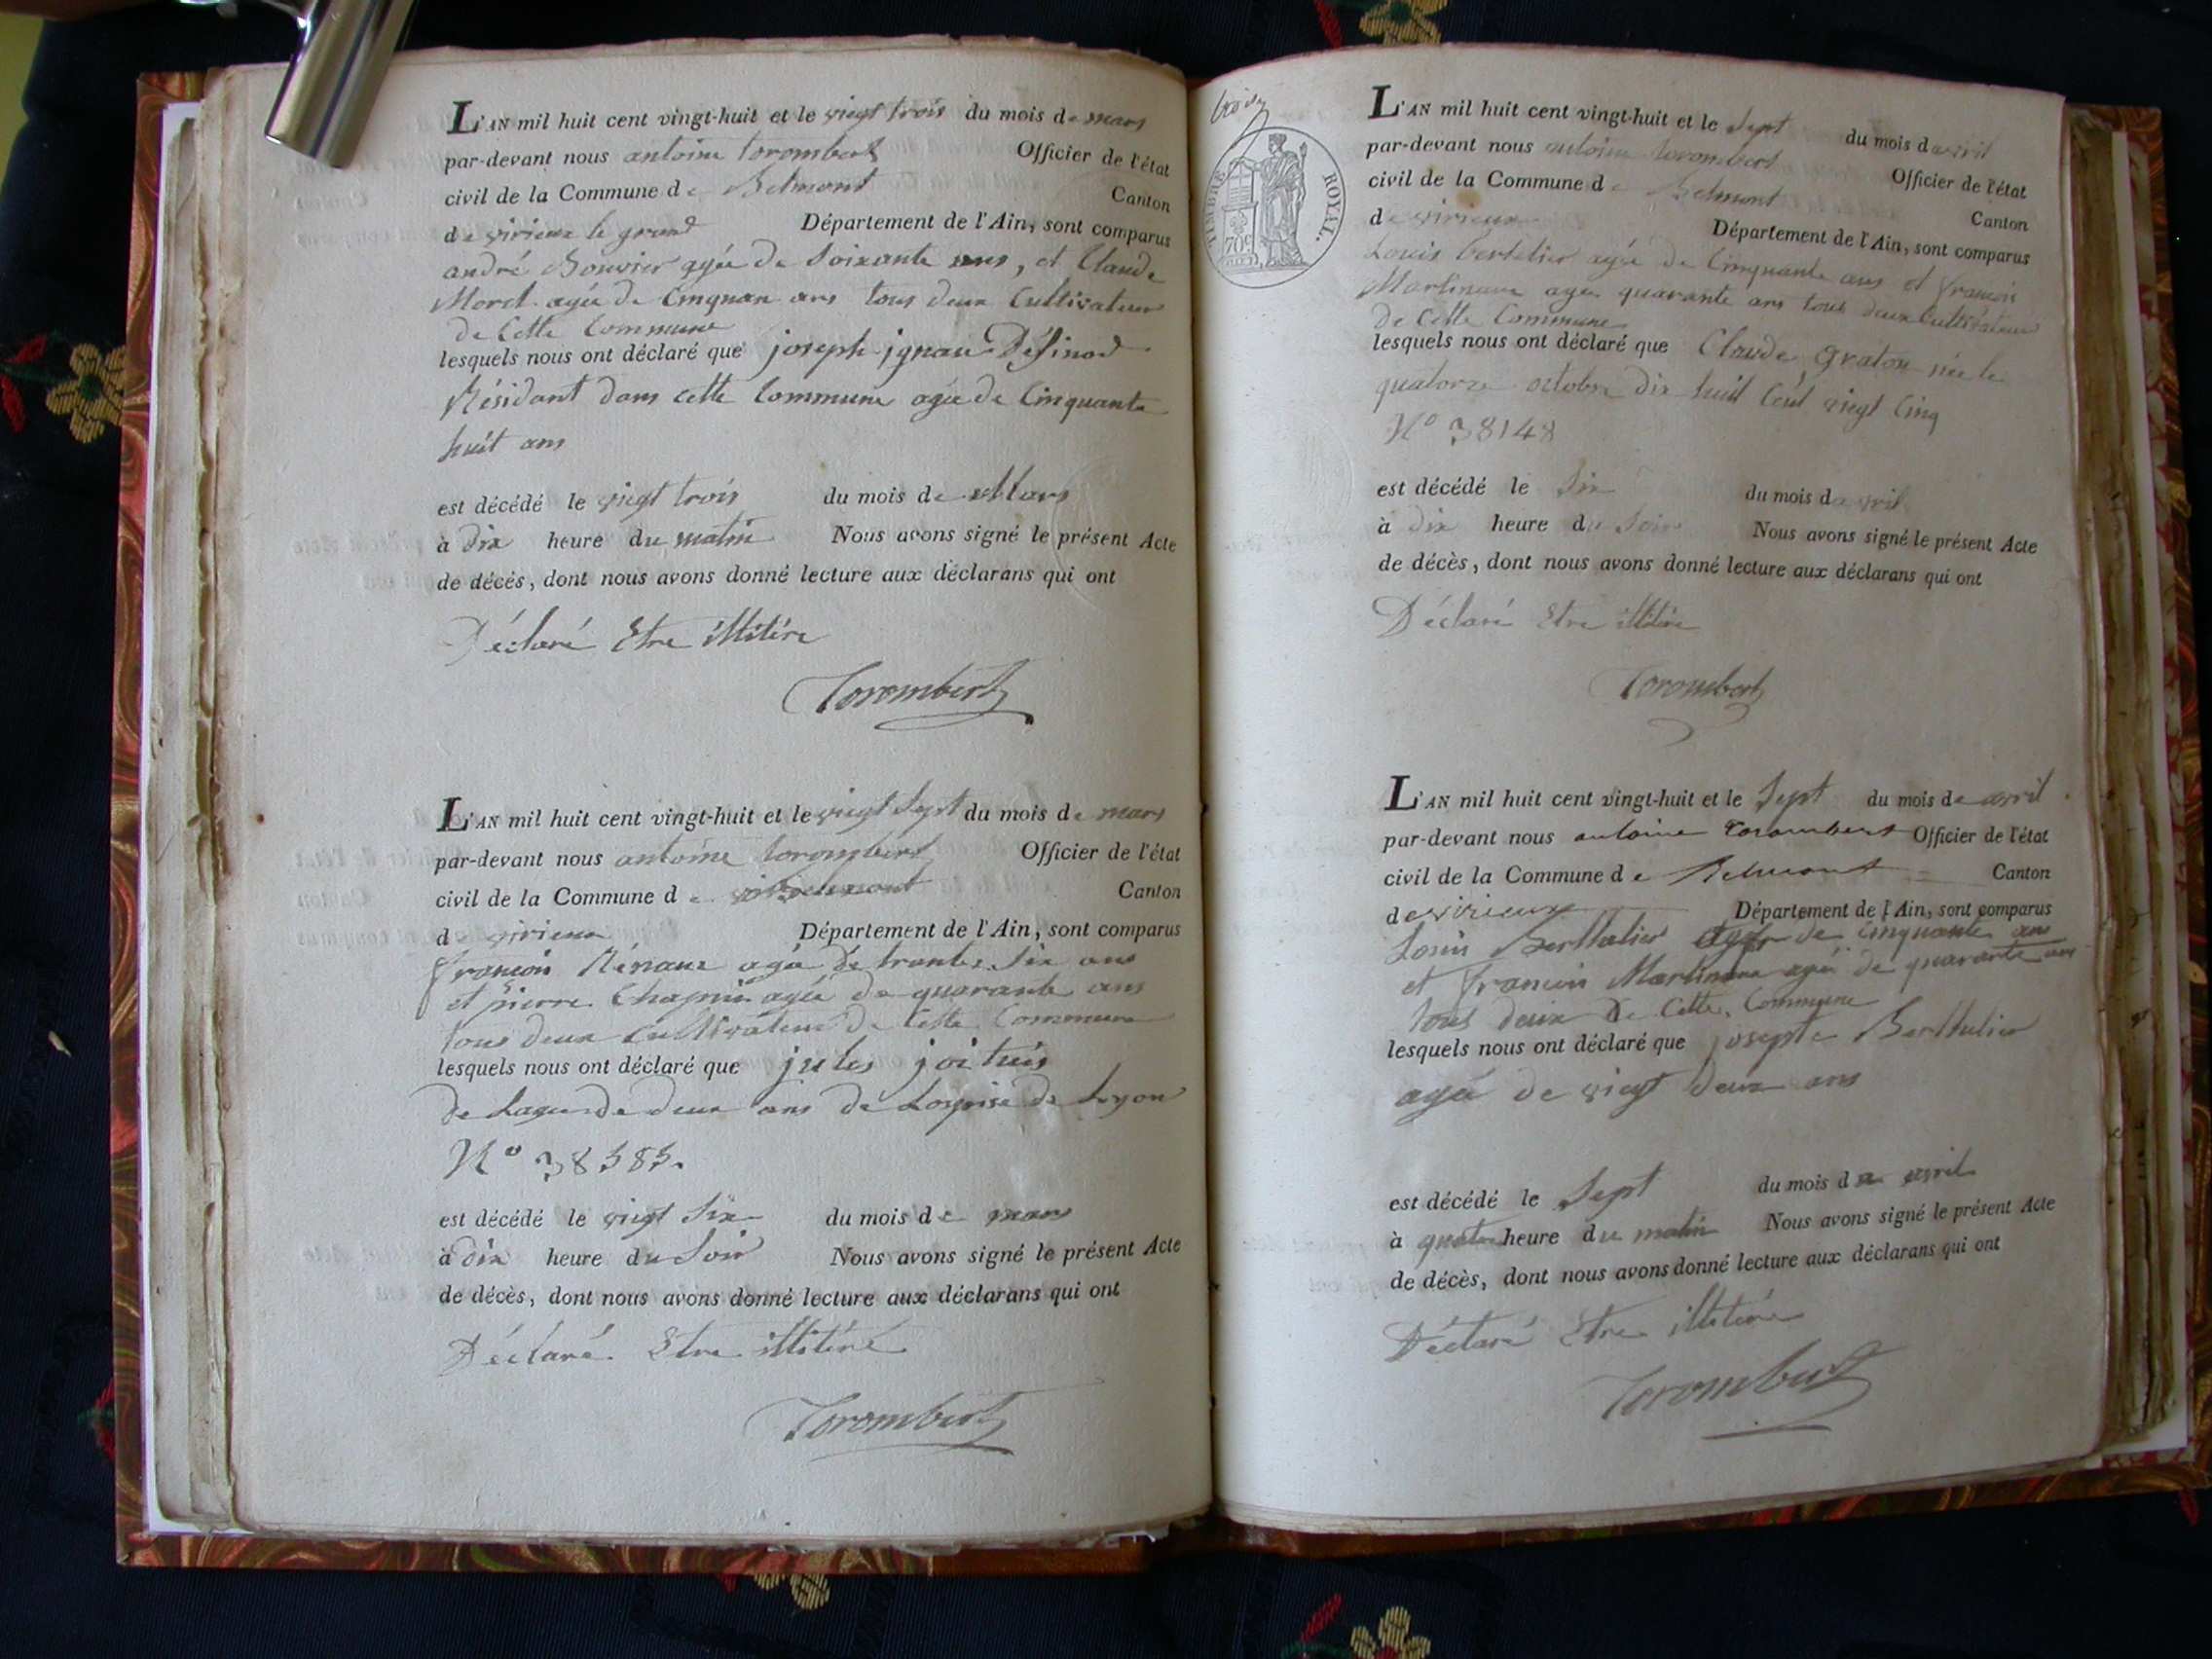 L'AN mil huit cent vingt-huit et le vingt trois du mois de mars
par-devant nous antoine torombert Officier de l'état
civil de la Commune de Belmont Canton
de virieux le grand Département de l'Ain, sont comparus
andré Bouvier agée de Soixante ans, et Claude
Morel agée de Cinquan ans tous deux Cultivateur
de Cette Commune
lesquels nous ont déclaré que joseph
Résidant dans cette Commune agée de Cinquante
huit ans
est décédé le vingt trois du mois de Mars
à dix heure du matin Nous avons signé le présent Acte
de décès, dont nous avons donné lecture aux déclarans qui ont
Déclaré Etre illitére
Torombert
L'AN mil huit cent vingt-huit et le vingt Sept du mois de mars
par-devant nous antoine torombert Officier de l'état
civil de la Commune de Belmont Canton
d virieux Département de l'Ain, sont comparus
françois agée de trante Six ans
et pierre agée de quarante ans
tous deux Cultivateur de Cette Commune
lesquels nous ont déclaré que jules
de Lage de deux ans de Lospise de Lyon
N° 38383.
est décédé le vingt Six du mois de mars
à dix heure du Soir Nous avons signé le présent Acte
de décès, dont nous avons donné lecture aux déclarans qui ont
Déclaré Etre illitéré
Torombert
TIMBRE ROYAL.
70c
L'AN mil huit cent vingt-huit et le Sept du mois d avril
par-devant nous antoine torombert Officier de l'état
civil de la Commune de Belmont Canton
de virieux Département de l'Ain, sont comparus
Louis bertelier agée de Cinquante ans et françois
Martinaux agée quarante ans tous deux Cultivateur
de Cette Commune
lesquels nous ont déclaré que Claude graton née le
quatorze octobre dix huit Cent vingt Cinq
N° 38148
est décédé le Six du mois d avril
à dix heure du Soir Nous avons signé le présent Acte
de décès, dont nous avons donné lecture aux déclarans qui ont
Déclaré Etre illitére
Torombert
L'AN mil huit cent vingt-huit et le Sept du mois de avril
par-devant nous antoine torombert Officier de l'état
civil de la Commune de Belmont Canton
de virieux Département de l'Ain, sont comparus
Louis Berthelier agée de cinquante ans
et françois Martinaux agée de quarante ans
tous deux de Cette Commune
lesquels nous ont déclaré que josepte Berthelier
agée de vingt deux ans
est décédé le Sept du mois d avril
à quatre heure du matin Nous avons signé le présent Acte
de décès, dont nous avons donné lecture aux déclarans qui ont
Déclaré Etre illitére
Torombert